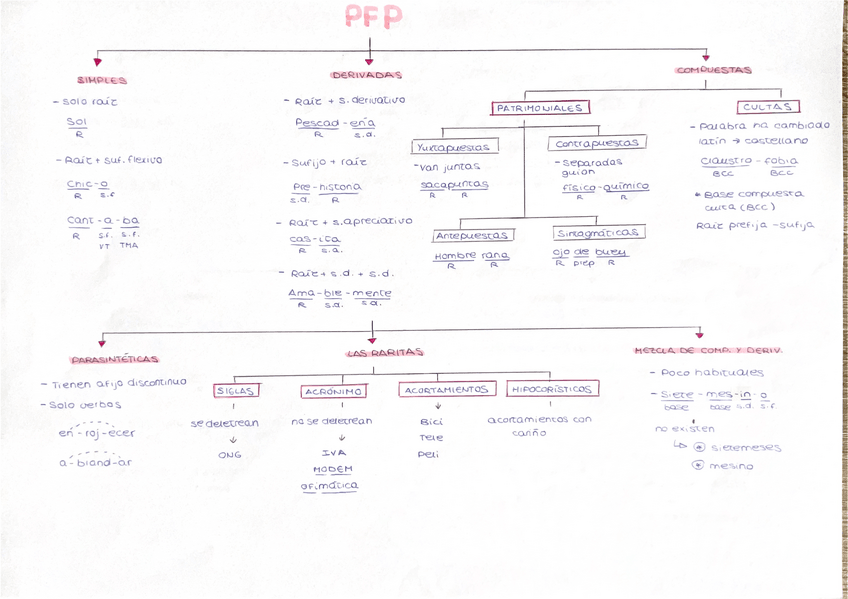 PFP
SIMPLES
- Solo raíz
Sol
R
- Raíz + suf. flexivo
Chic-o
R s.f
Cant-a-ba
R s.f. s.f.
VT TMA
DERIVADAS
- Raíz + s. derivativo
Pescad-ería
R s.d.
- Sufijo + raíz
Pre-historia
s.d. R
- Raíz + s. apreciativo
cas-ita
R s.a.
- Raíz + s.d. + s.d.
Ama-ble-mente
R s.d. s.d.
COMPUESTAS
PATRIMONIALES
Yuxtapuestas
- Van juntas
sacapuntas
R R
Contrapuestas
- Separadas
guion
físico-químico
R R
Antepuestas
Hombre rana
R R
Sintagmáticas
ojo de buey
R prep R
CULTAS
- Palabra ha cambiado
latín → castellano
Claustro-fobia
BCC BCC
* Base compuesta
culta (BCC)
Raíz prefija-sufija
PARASINTÉTICAS
- Tienen afijo discontinuo
- Solo verbos
en-roj-ecer
a-bland-ar
LAS RARITAS
SIGLAS
se deletrean
↓
ONG
ACRÓNIMO
no se deletrean
↓
IVA
MODEM
ofimática
ACORTAMIENTOS
↓
Bici
Tele
Peli
HIPOCORÍSTICOS
acortamientos con
cariño
MEZCLA DE COMP. Y DERIV.
- Poco habituales
- Siete-mes-in-o
base base s.d. s.f
no existen
↳ * sietemeses
* mesino